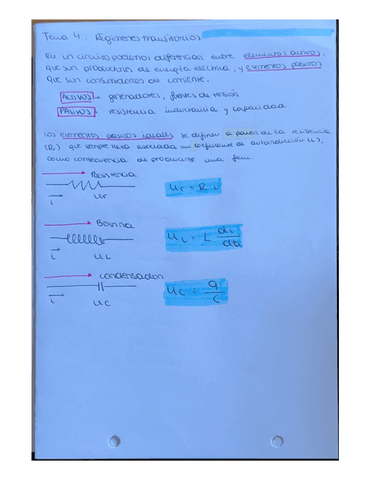 Tema 4: Regímenes transitorios
En un circuito podemos diferenciar entre elementos activos,
que son productores de energía eléctrica, y elementos pasivos
que son consumidores de corriente.
ACTIVOS → generadores, fuentes de tensión
PASIVOS → resistencia inductancia y capacidad
Los elementos pasivos ideales se definen a partir de la resistencia
(R), que siempre lleva asociada un coeficiente de autoinducción (L),
como consecuencia de producirse una fem.
Resistencia
i
ur
ur = R · i
Bobina
i
uL
uL = L di/dt
Condensador
i
uc
uc = q/c